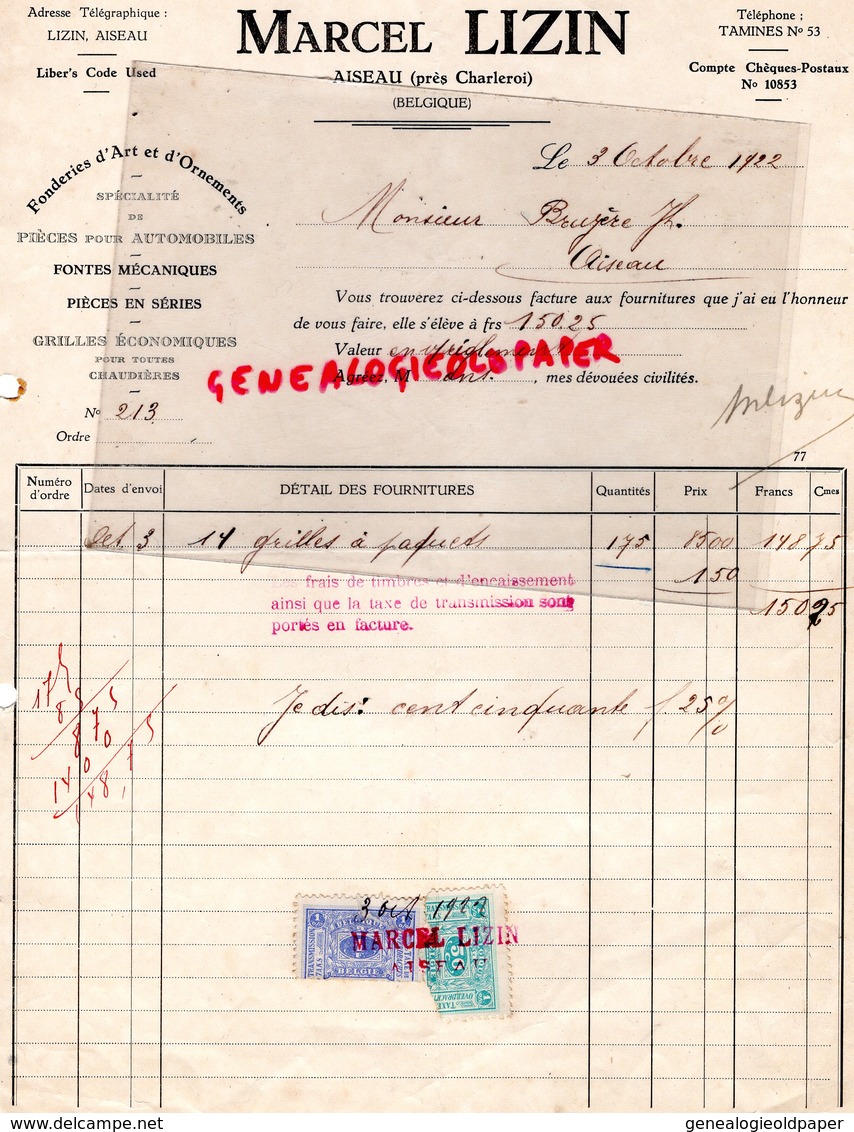 Adresse Télégraphique :
LIZIN, AISEAU
Liber's Code Used
MARCEL LIZIN
AISEAU (près Charleroi)
(BELGIQUE)
Téléphone ;
TAMINES No 53
Compte Chèques-Postaux
No 10853
Fonderies d'Art et d'Ornements
SPÉCIALITÉ
DE
PIÈCES POUR AUTOMOBILES
FONTES MÉCANIQUES
PIÈCES EN SÉRIES
GRILLES ÉCONOMIQUES
POUR TOUTES
CHAUDIÈRES
No 213
Ordre
Le 3 Octobre 1922
Monsieur Bruyère Jh.
Aiseau
Vous trouverez ci-dessous facture aux fournitures que j'ai eu l'honneur
de vous faire, elle s'élève à frs 150.25
Valeur en règlement
Agréez, M ant. , mes dévouées civilités.
GENEALOGIEOLDPAPER
MLizin
77
Numéro d'ordre Dates d'envoi DÉTAIL DES FOURNITURES Quantités Prix Francs Cmes
Oct 3 14 grilles à paquets 175 8500 148 75
150
150 25
Les frais de timbres et d'encaissement
ainsi que la taxe de transmission sont
portés en facture.
175
85
875
1400
148,75
Je dis: cent cinquante f 25 %
3 oct 1922
BELGIQUE
BELGIË
TRANSMISSION
TAXE
OVERDRACHT
MARCEL LIZIN
AISEAU
genealogieoldpaper